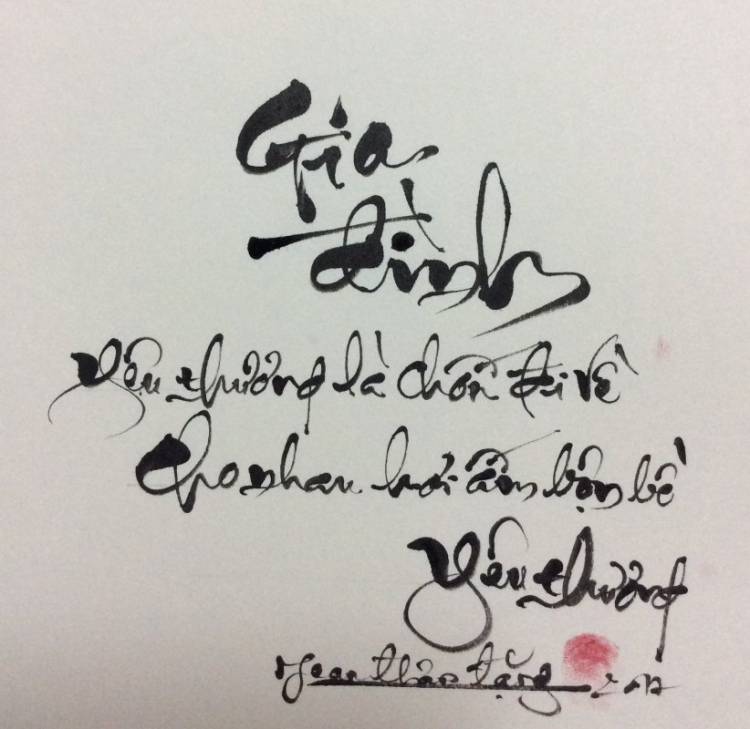 Gia
đình
Yêu thương là chốn đi về
Cho nhau hơi ấm bộn bề
Yêu thương
thân tặng 2017